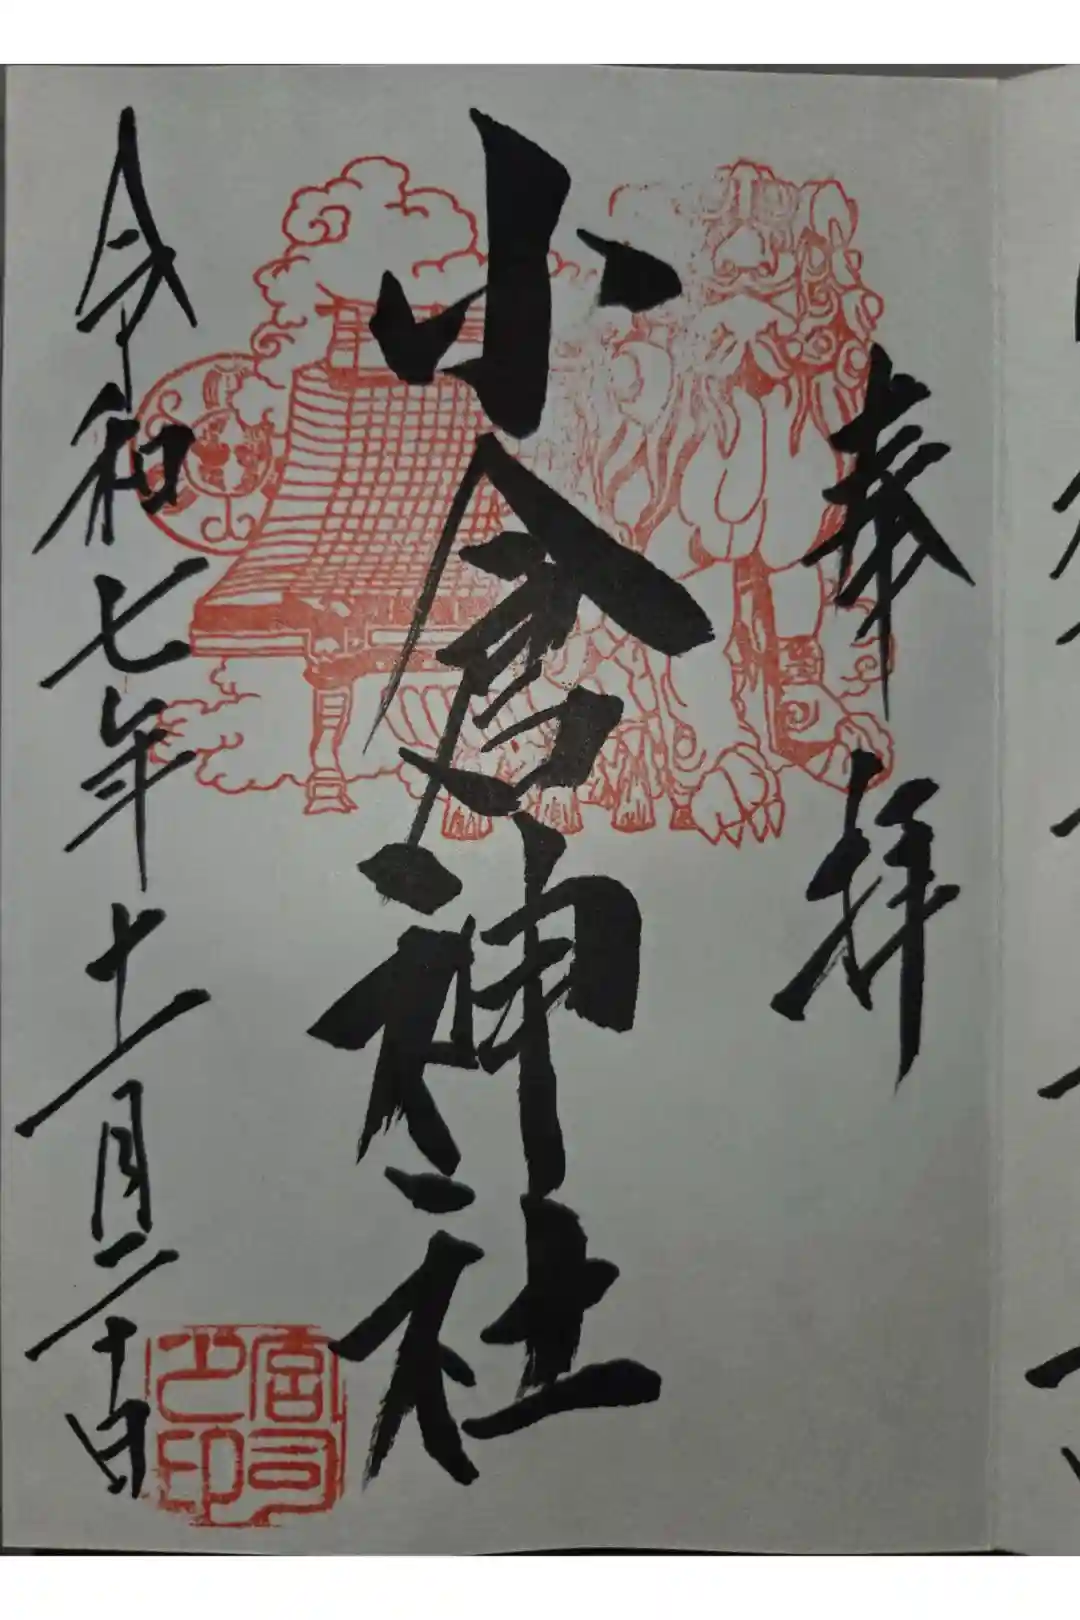 奉拝
小倉神社
令和七年十一月二十日
宮司
之印